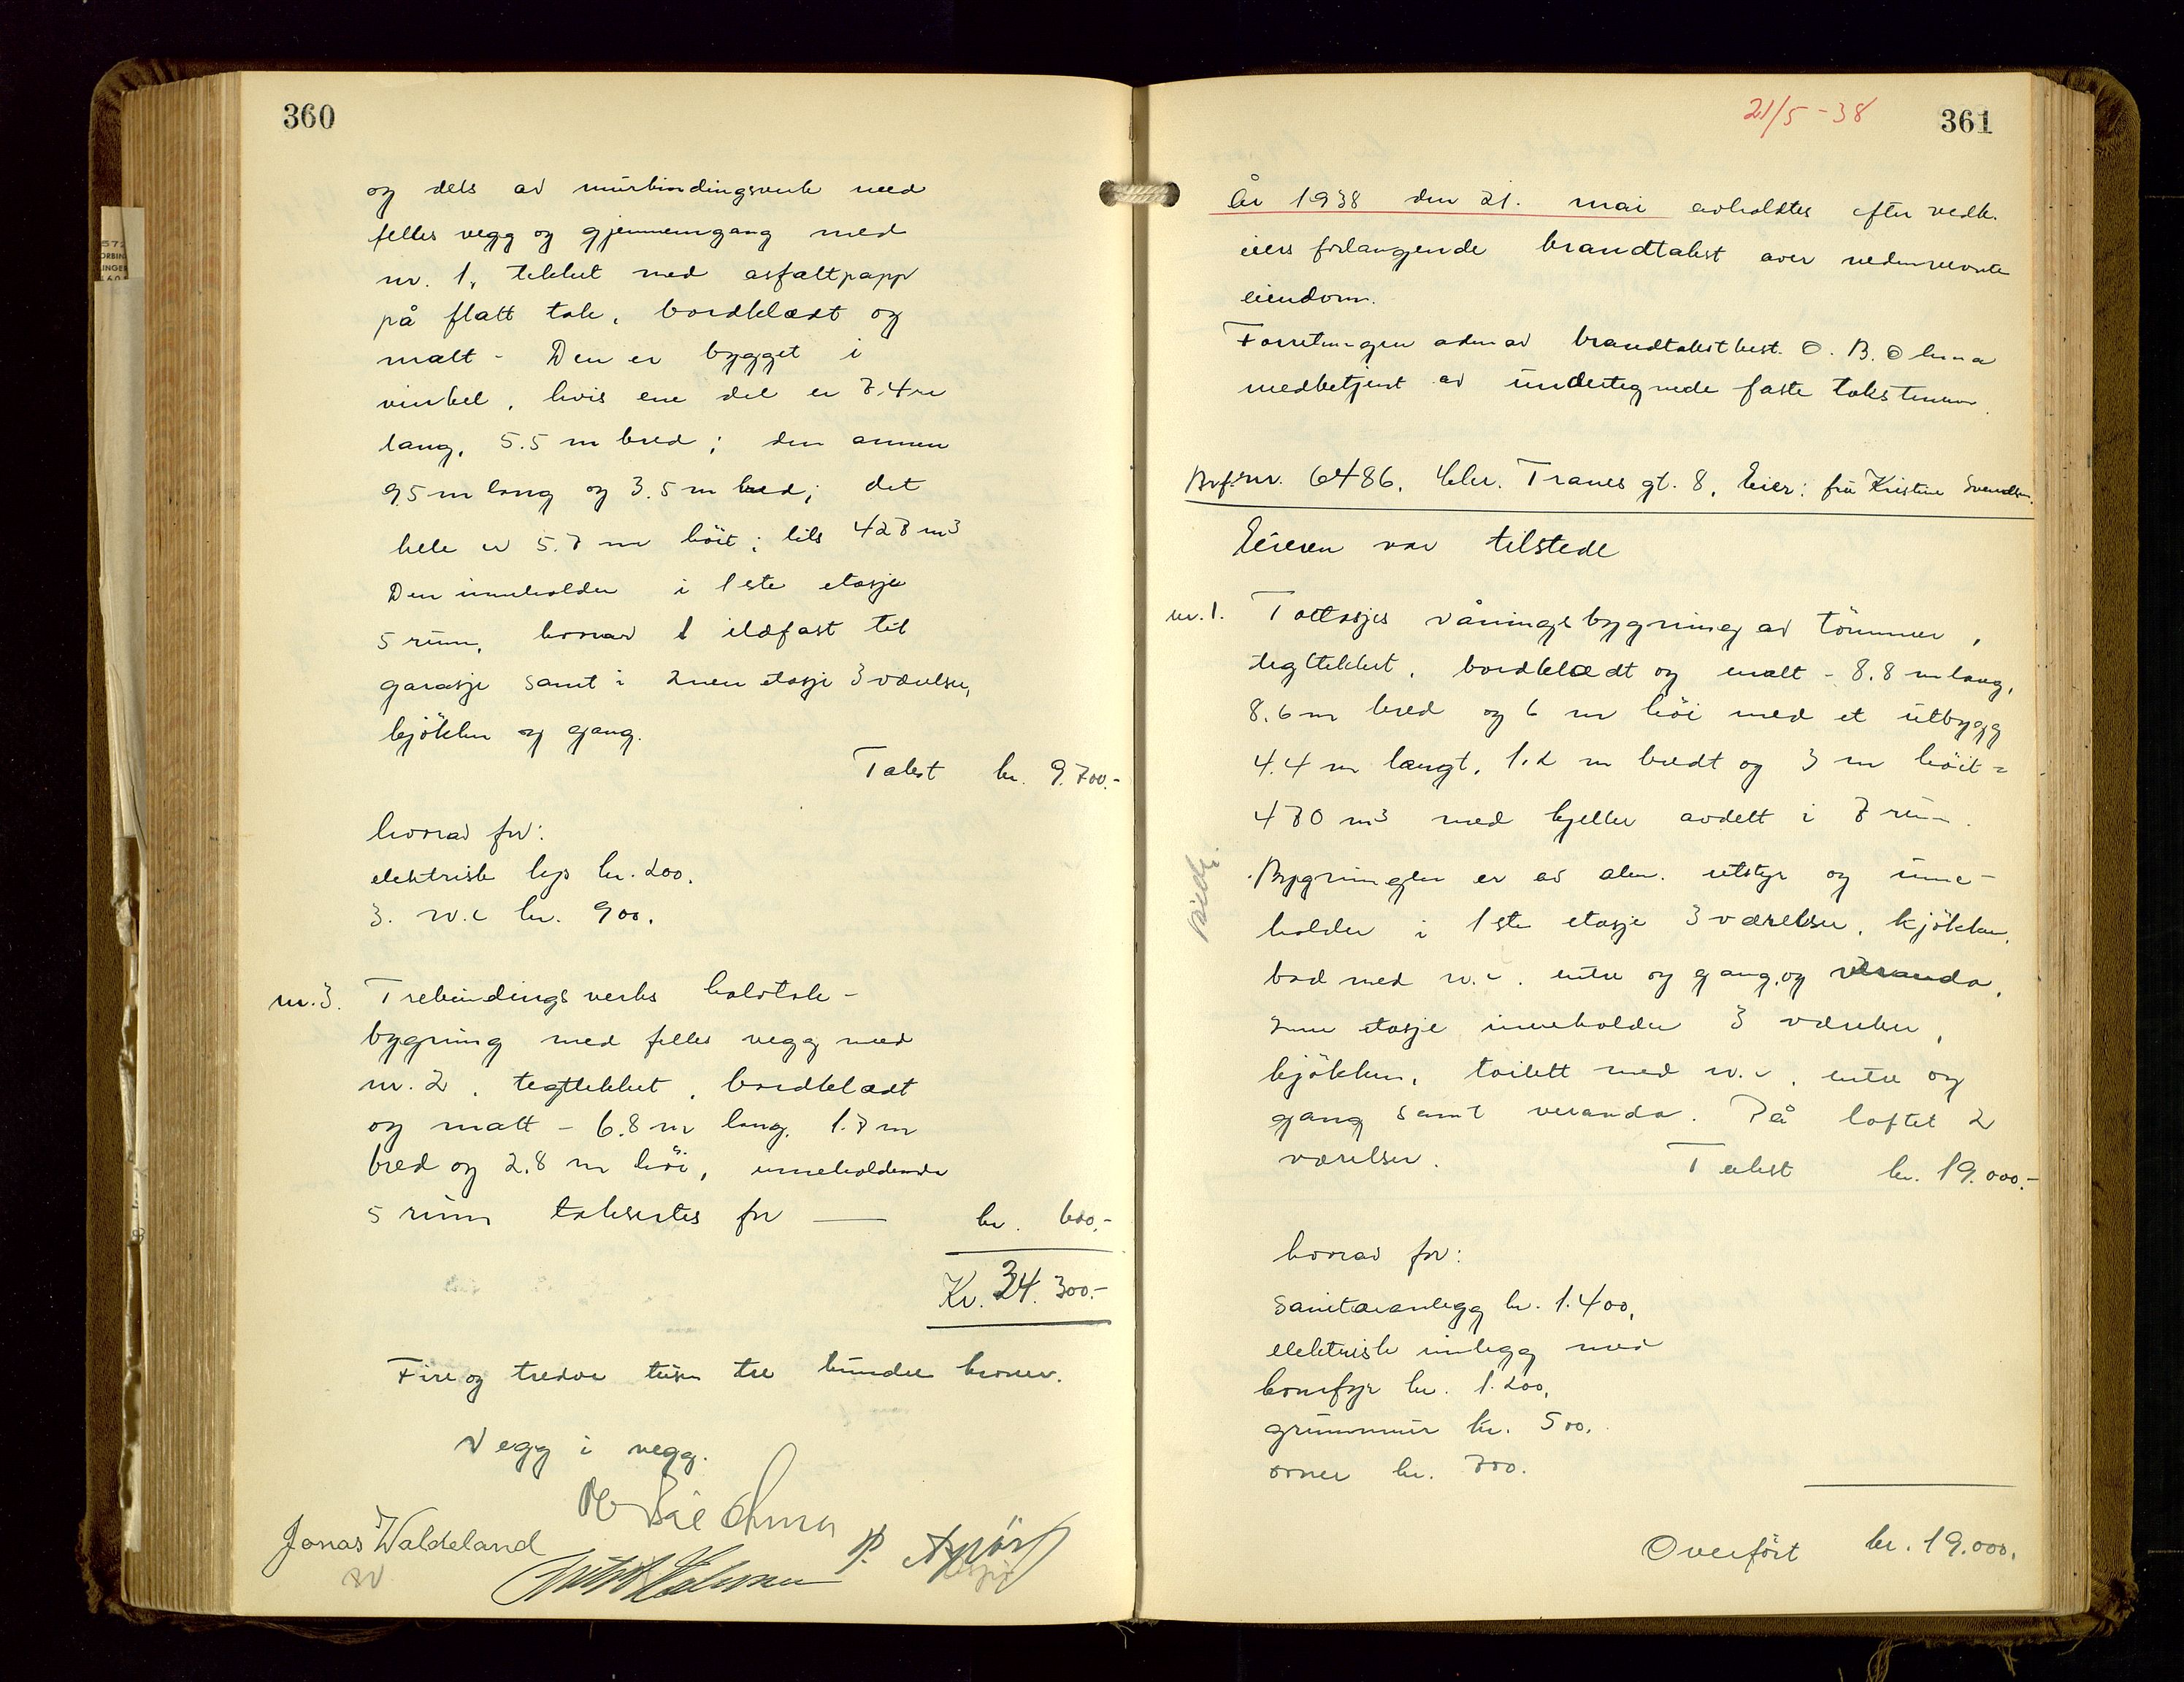 360
og dels av murbindingsverk med
felles vegg og gjennemgang med
nr. 1, tekket med asfaltpapp
på flatt tak, bordklædt og
malt - Den er bygget i
vinkel, hvis ene del er 7.4 m
lang, 5.5 m bred; den annen
9.5 m lang og 3.5 m bred; det
hele er 5.7 m höit; tils 427 m3
Den inneholder i 1ste etasje
5 rum, hvorav 1 ildfast til
garasje samt i 2nen etasje 3 værelser,
kjökken og gang.
Takst kr. 9.700.-
hvorav for:
elektrisk lys kr. 200.
3. w.c kr. 900.
nr. 3. Trebindingsverks halvtak-
bygning med felles vegg med
nr. 2, tegltekket, bordklædt
og malt - 6.8 m lang, 1.7 m
bred og 2.8 m höi, inneholdende
5 rum taksertes for — kr. 600.-
Kr. 34.300.-
Fire og tredve tusen tre hundre kroner.
Vegg i vegg.
Jonas Waldeland
361
21/5 - 38
År 1938 den 21. mai avholdtes efter vedk.
eiers forlangende brandtakst over nedennevnte
eiendom.
Forretningen adm av brandtakstbest. O. B. Ohma
medbetjent av undertegnede faste takstmenn.
Brf.nr. 6486. Chr. Tranes gt. 8, Eier: fru Kristine Svendsen.
Eieren var tilstede
nr. 1. Toetasjes våningsbygning av tömmer,
tegltekket, bordklædt og malt - 8.8 m lang,
8.6 m bred og 6 m höi med et utbygg
4.4 m langt, 1.2 m bredt og 3 m höit =
470 m3 med kjeller avdelt i 7 rum.
Bygningen er av alm. utstyr og inne-
holder i 1ste etasje 3 værelser, kjökken,
bad med w.c. entre og gang, og veranda,
2nen etasje inneholder 3 værelser,
kjökken, toilett med w.c, entre og
gang samt veranda. På loftet 2
værelser. Takst kr. 19.000.-
hvorav for:
sanitæranlegg kr. 1.400,
elektrisk innlegg med
komfyr kr. 1.200,
grunnmur kr. 500.
ovner kr. 700.
Overfört kr. 19.000.